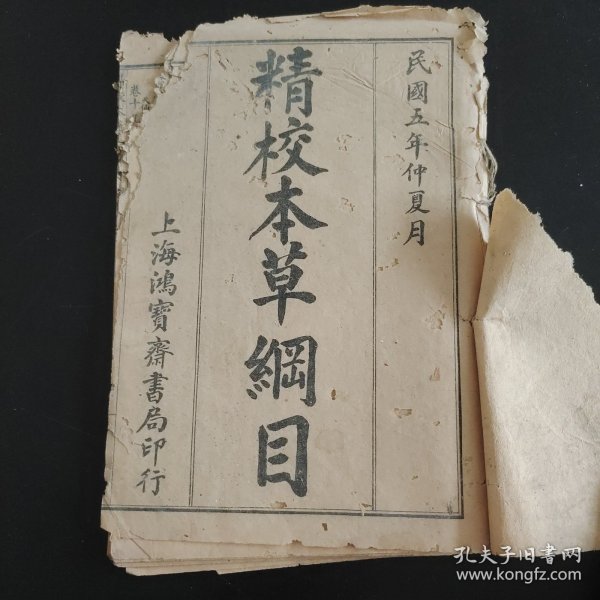 民國五年仲夏月
精校本草綱目
上海鴻寶齋書局印行
卷十
孔夫子旧书网
www.kongfz.com